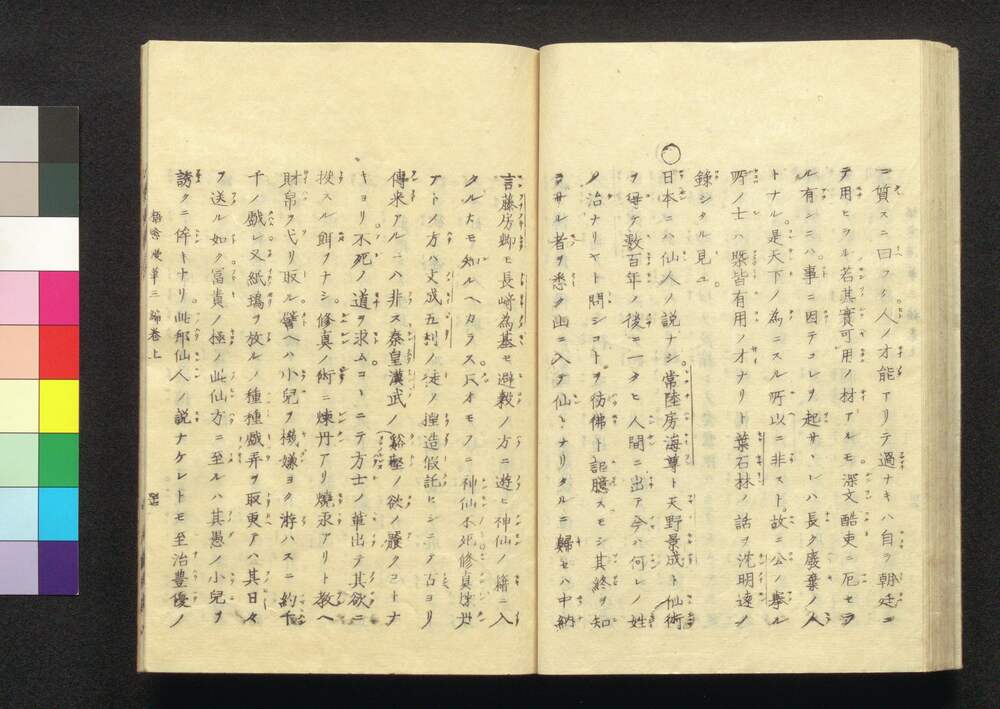 ニ質スニ曰フ、人ノ才能アリテ過ナキハ自ラ朝廷ニ
テ用ヒラル若其實可用ノ材アルモ。深文酷吏ニ厄セラ
ル有ンニハ。事ニ因テコレヲ起サヽレハ長ク廢棄ノ人
トナル。是天下ノ為ニスル所以ニ非スト。故ニ公ノ擧ル
所ノ士ハ槩皆有用ノ才ナリト葉石林ノ話ヲ沈明遠ノ
錄シタル見ユ。
〇日本ニハ仙人ノ説ナシ。常陸房海尊ト天野景成ト仙術
ヲ得テ數百年ノ後ニ一タヒ人間ニ出テ今ハ何レノ姓
ノ治ナリヤト問シコトヲ彷彿ト謳臆スモシ其終ヲ知
ラサル者ヲ悉ク山ニ入テ仙トナリタルニ歸セハ中納
言藤房卿モ長﨑為基モ避穀ノ方ニ遊ヒ神仙ノ籍ニ入
タルカモ知ルヘカラス。凡オモフニ神仙不死修眞煉丹
アトノ方ハ文成五利ノ徒ノ捏造假託ヒシニテ古ヨリ
傳来アルニハ非ス秦皇漢武ノ谿壑ノ欲ノ饜クコトナ
キヨリ。不死ノ道ヲ求ムコヽニテ方士ノ輩出テ其欲ニ
投スル餌ヲナシ。修真ノ術ニ煉丹アリ燒汞アリト教ヘ
財帛ヲ弋リ取ル。譬ヘハ小兒ヲ機嫌ヨク游ハスニ約千
千ノ戯レ又紙鳶ヲ放ルノ種種戯弄ヲ取更アハ其日々
ヲ送ル如ク。冨貴ノ極ノ此仙方ニ至ルハ其愚ノ小兒ヲ
誘クニ侔トナリ此邦仙人ノ説ナケレトモ至治豊優ノ
三編卷上